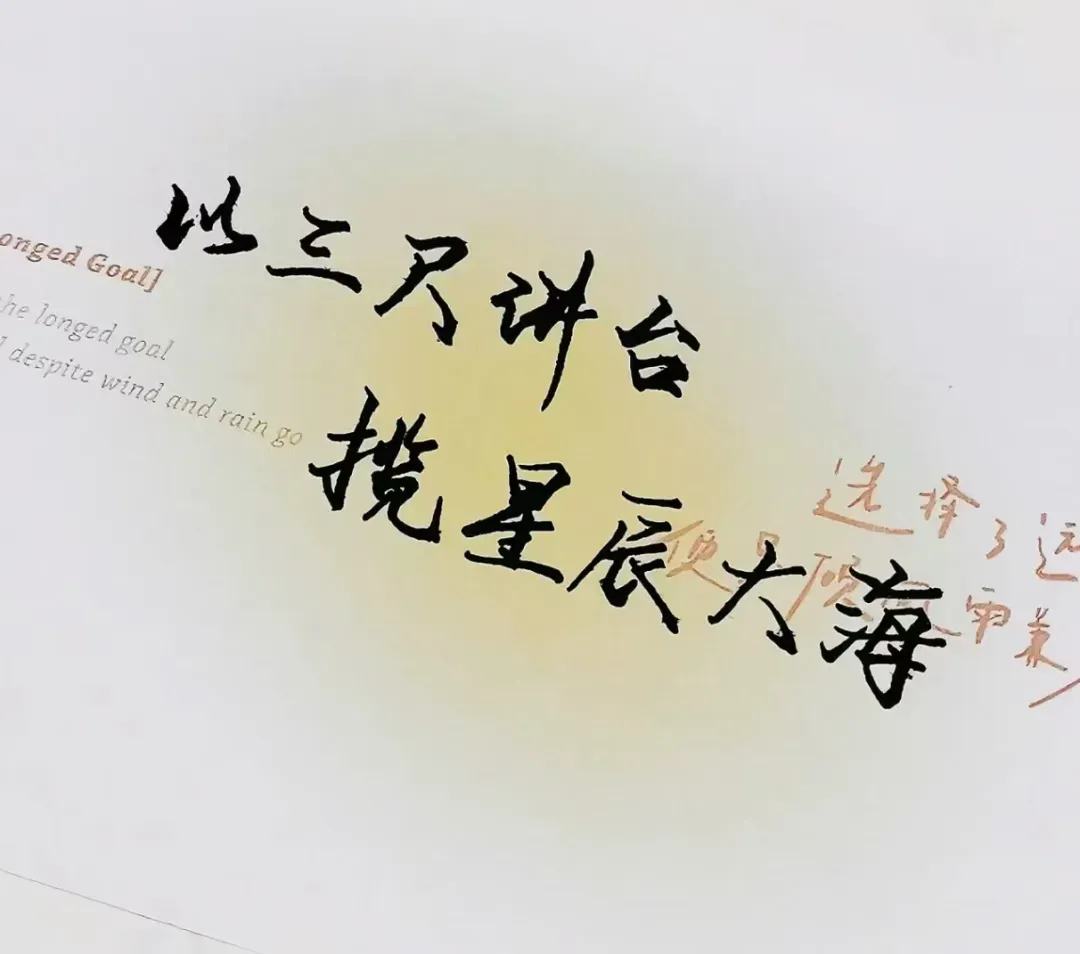 以三尺讲台
揽星辰大海
onged Goal]
he longed goal
despite wind and rain go
选择了远
便是顾风雨兼